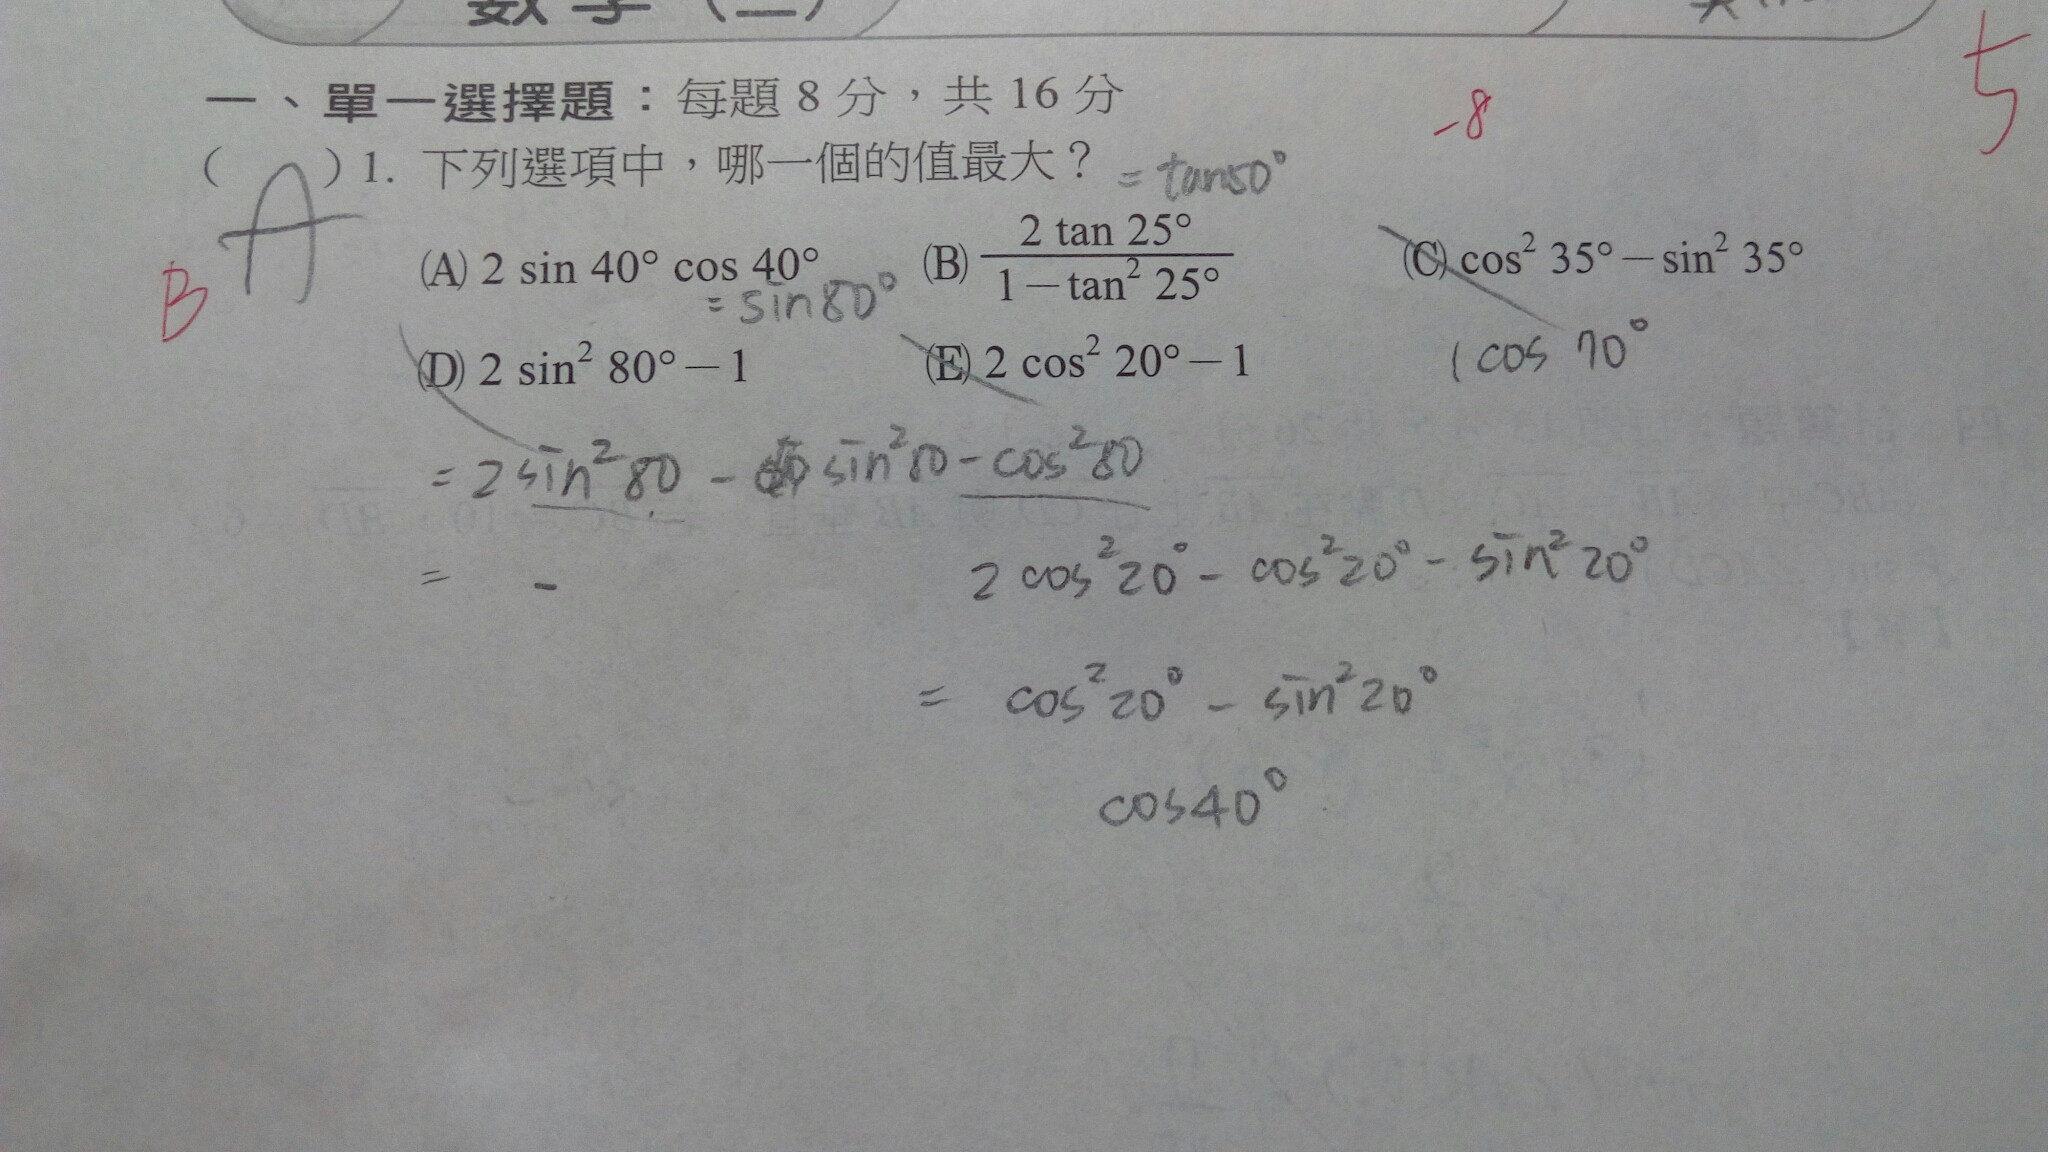 數學（二）
一、單一選擇題：每題 8 分，共 16 分
-8
( A ) 1. 下列選項中，哪一個的值最大？ = tan50°
B
(A) 2 sin 40° cos 40° (B) 2 tan 25° / 1－tan² 25° (C) cos² 35°－sin² 35°
= sin80°
(D) 2 sin² 80°－1 (E) 2 cos² 20°－1
cos 70°
= 2 sin²80 - sin²80 - cos²80
= -
2 cos²20° - cos²20° - sin²20°
= cos²20° - sin²20°
cos40°